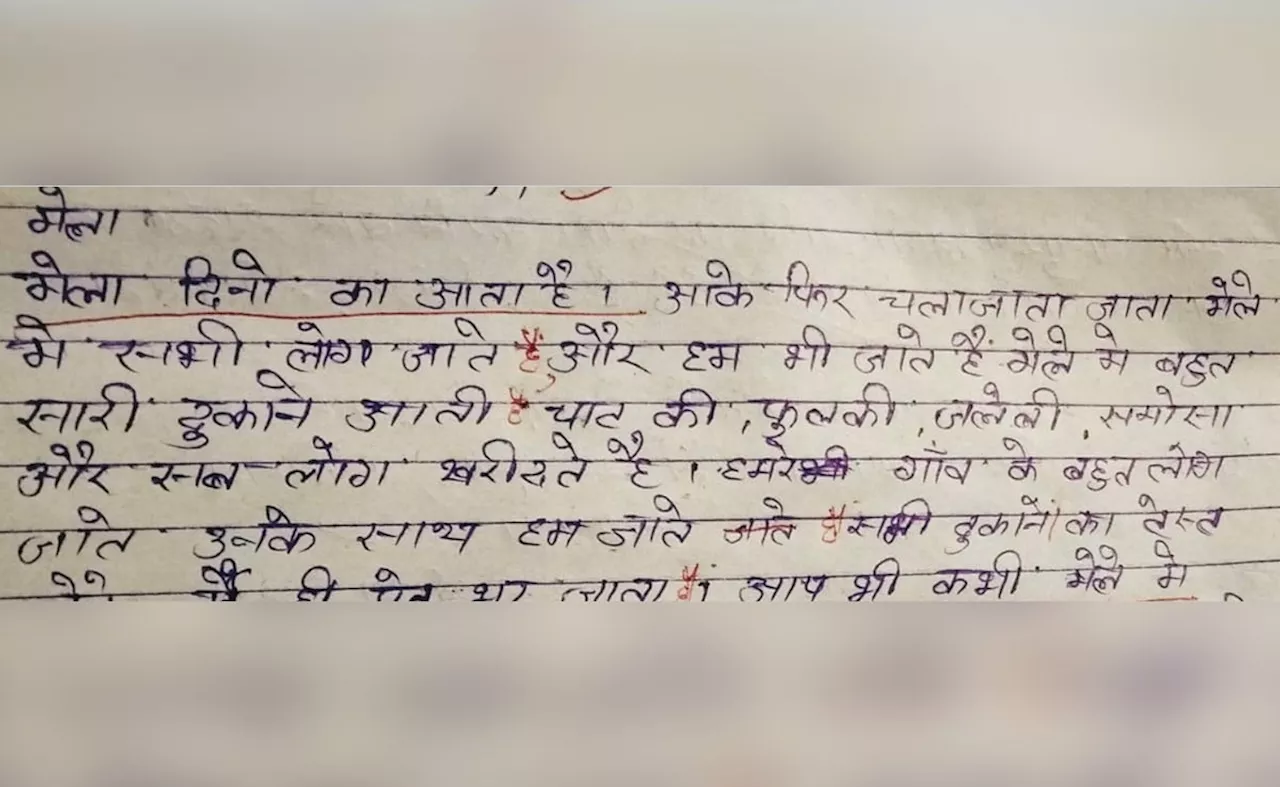 मेला
मेला दिनो का आता है । आके फिर चलाजाता जाता मेले
मे सभी लोग जाते हैं, और हम भी जाते हैं मेले मे बहुत
सारी दुकाने आती है चाट की, फुलकी, जलेली, समोसा
और सब लोग खरीदते है । हमरे गाँव के बहुत लोग
जाते उनके साथ हम जाते जाते हैं सभी दुकानों का टेस्ट
ही पेट भर जाता है। आप भी कभी मेले मे